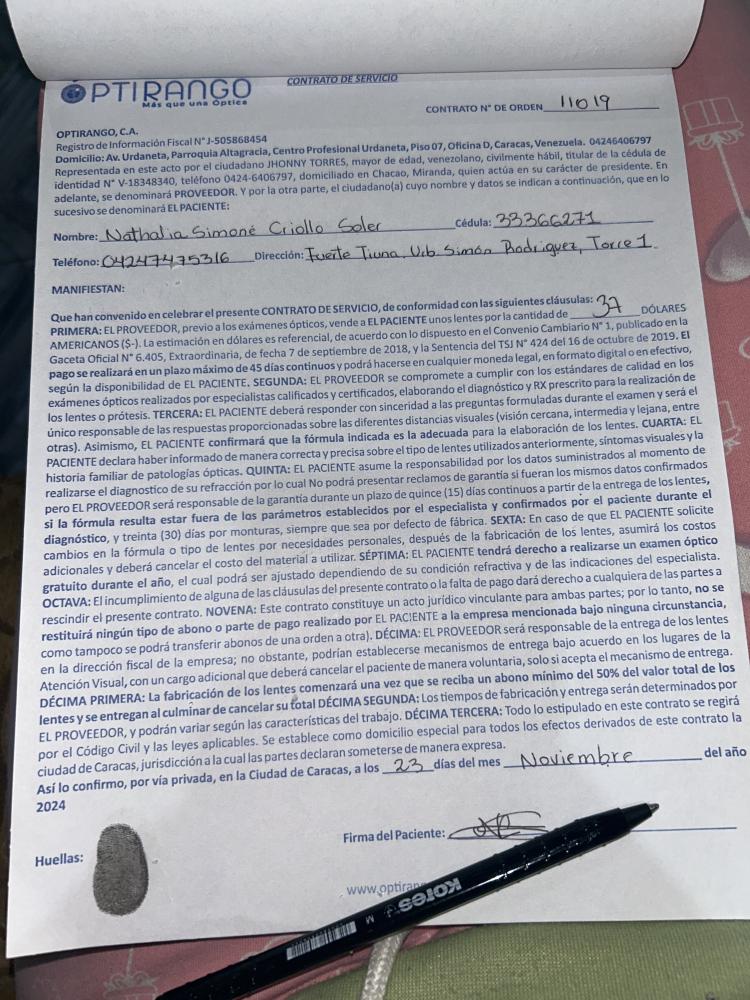 OPTIRANGO
Más que una Óptica
CONTRATO DE SERVICIO
CONTRATO N° DE ORDEN 11019
OPTIRANGO, C.A.
Registro de Información Fiscal N° J-505868454
Domicilio: Av. Urdaneta, Parroquia Altagracia, Centro Profesional Urdaneta, Piso 07, Oficina D, Caracas, Venezuela. 04246406797
Representada en este acto por el ciudadano JHONNY TORRES, mayor de edad, venezolano, civilmente hábil, titular de la cédula de
identidad N° V-18348340, teléfono 0424-6406797, domiciliado en Chacao, Miranda, quien actúa en su carácter de presidente. En
adelante, se denominará PROVEEDOR. Y por la otra parte, el ciudadano(a) cuyo nombre y datos se indican a continuación, que en lo
sucesivo se denominará EL PACIENTE:
Nombre: Nathalia Simoné Criollo Soler Cédula: 33366271
Teléfono: 04247475316 Dirección: Fuerte Tiuna, Urb. Simón Rodriguez, Torre 1.
MANIFIESTAN:
Que han convenido en celebrar el presente CONTRATO DE SERVICIO, de conformidad con las siguientes cláusulas:
PRIMERA: EL PROVEEDOR, previo a los exámenes ópticos, vende a EL PACIENTE unos lentes por la cantidad de 37 DÓLARES
AMERICANOS ($-). La estimación en dólares es referencial, de acuerdo con lo dispuesto en el Convenio Cambiario N° 1, publicado en la
Gaceta Oficial N° 6.405, Extraordinaria, de fecha 7 de septiembre de 2018, y la Sentencia del TSJ N° 424 del 16 de octubre de 2019. El
pago se realizará en un plazo máximo de 45 días continuos y podrá hacerse en cualquier moneda legal, en formato digital o en efectivo,
según la disponibilidad de EL PACIENTE. SEGUNDA: EL PROVEEDOR se compromete a cumplir con los estándares de calidad en los
exámenes ópticos realizados por especialistas calificados y certificados, elaborando el diagnóstico y RX prescrito para la realización de
los lentes o prótesis. TERCERA: EL PACIENTE deberá responder con sinceridad a las preguntas formuladas durante el examen y será el
único responsable de las respuestas proporcionadas sobre las diferentes distancias visuales (visión cercana, intermedia y lejana, entre
otras). Asimismo, EL PACIENTE confirmará que la fórmula indicada es la adecuada para la elaboración de los lentes. CUARTA: EL
PACIENTE declara haber informado de manera correcta y precisa sobre el tipo de lentes utilizados anteriormente, síntomas visuales y la
historia familiar de patologías ópticas. QUINTA: EL PACIENTE asume la responsabilidad por los datos suministrados al momento de
realizarse el diagnostico de su refracción por lo cual No podrá presentar reclamos de garantía si fueran los mismos datos confirmados
pero EL PROVEEDOR será responsable de la garantía durante un plazo de quince (15) días continuos a partir de la entrega de los lentes,
si la fórmula resulta estar fuera de los parámetros establecidos por el especialista y confirmados por el paciente durante el
diagnóstico, y treinta (30) días por monturas, siempre que sea por defecto de fábrica. SEXTA: En caso de que EL PACIENTE solicite
cambios en la fórmula o tipo de lentes por necesidades personales, después de la fabricación de los lentes, asumirá los costos
adicionales y deberá cancelar el costo del material a utilizar. SÉPTIMA: EL PACIENTE tendrá derecho a realizarse un examen óptico
gratuito durante el año, el cual podrá ser ajustado dependiendo de su condición refractiva y de las indicaciones del especialista.
OCTAVA: El incumplimiento de alguna de las cláusulas del presente contrato o la falta de pago dará derecho a cualquiera de las partes a
rescindir el presente contrato. NOVENA: Este contrato constituye un acto jurídico vinculante para ambas partes; por lo tanto, no se
restituirá ningún tipo de abono o parte de pago realizado por EL PACIENTE a la empresa mencionada bajo ninguna circunstancia,
como tampoco se podrá transferir abonos de una orden a otra). DÉCIMA: EL PROVEEDOR será responsable de la entrega de los lentes
en la dirección fiscal de la empresa; no obstante, podrían establecerse mecanismos de entrega bajo acuerdo en los lugares de la
Atención Visual, con un cargo adicional que deberá cancelar el paciente de manera voluntaria, solo si acepta el mecanismo de entrega.
DÉCIMA PRIMERA: La fabricación de los lentes comenzará una vez que se reciba un abono mínimo del 50% del valor total de los
lentes y se entregan al culminar de cancelar su total DÉCIMA SEGUNDA: Los tiempos de fabricación y entrega serán determinados por
EL PROVEEDOR, y podrán variar según las características del trabajo. DÉCIMA TERCERA: Todo lo estipulado en este contrato se regirá
por el Código Civil y las leyes aplicables. Se establece como domicilio especial para todos los efectos derivados de este contrato la
ciudad de Caracas, jurisdicción a la cual las partes declaran someterse de manera expresa.
Así lo confirmo, por vía privada, en la Ciudad de Caracas, a los 23 días del mes Noviembre del año
2024
Firma del Paciente:
Huellas:
www.optiran
Kores
M